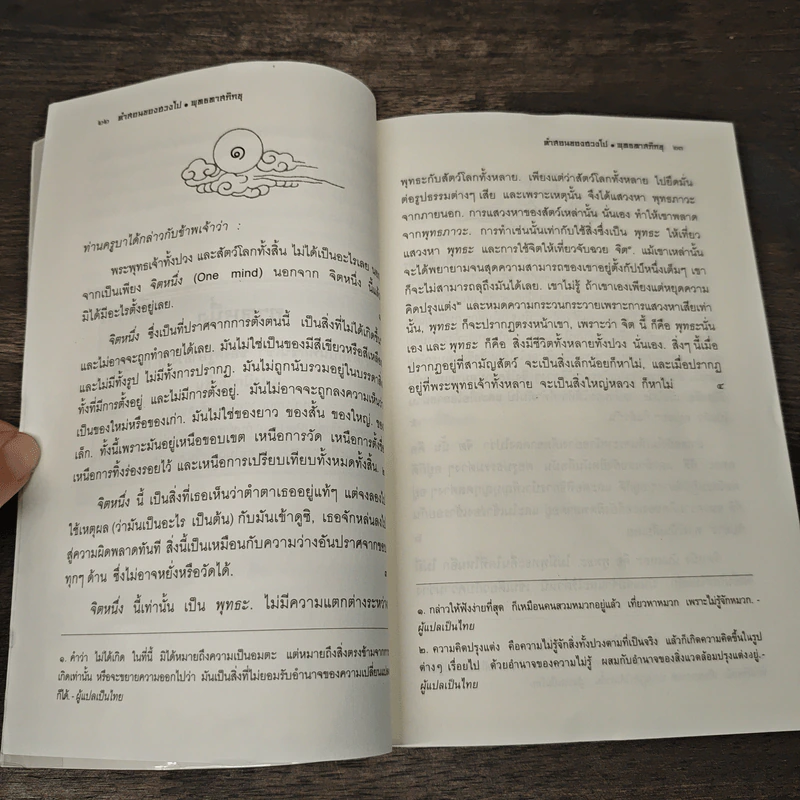 ๒๒ คำสอนของฮวงโป • พุทธทาสภิกขุ
๑
ท่านครูบาได้กล่าวกับข้าพเจ้าว่า :
พระพุทธเจ้าทั้งปวง และสัตว์โลกทั้งสิ้น ไม่ได้เป็นอะไรเลย
จากเป็นเพียง จิตหนึ่ง (One mind) นอกจาก จิตหนึ่ง นี้แล้ว
มิได้มีอะไรตั้งอยู่เลย.
จิตหนึ่ง ซึ่งเป็นที่ปราศจากการตั้งต้นนี้ เป็นสิ่งที่ไม่ได้เกิดขึ้น
และไม่อาจจะถูกทำลายได้เลย. มันไม่ใช่เป็นของมีสีเขียวหรือสีเหลือง
และไม่มีทั้งรูป ไม่มีทั้งการปรากฏ. มันไม่ถูกนับรวมอยู่ในบรรดาสิ่ง
ทั้งที่มีการตั้งอยู่ และไม่มีการตั้งอยู่. มันไม่อาจจะถูกลงความเห็นว่า
เป็นของใหม่หรือของเก่า. มันไม่ใช่ของยาว ของสั้น ของใหญ่.
เล็ก. ทั้งนี้เพราะมันอยู่เหนือขอบเขต เหนือการวัด เหนือการตั้งชื่อ
เหนือการทิ้งร่องรอยไว้ และเหนือการเปรียบเทียบทั้งหมดทั้งสิ้น
จิตหนึ่ง นี้ เป็นสิ่งที่เธอเห็นว่าตำตาเธออยู่แท้ๆ แต่จงลอง
ใช้เหตุผล (ว่ามันเป็นอะไร เป็นต้น) กับมันเข้าดูซิ, เธอจักหล่นลงไป
สู่ความผิดพลาดทันที สิ่งนี้เป็นเหมือนกับความว่างอันปราศจากขอบ
ทุกๆ ด้าน ซึ่งไม่อาจหยั่งหรือวัดได้.
จิตหนึ่ง นี้เท่านั้น เป็น พุทธะ. ไม่มีความแตกต่างระหว่าง
๑. คำว่า ไม่ได้เกิด ในที่นี้ มิได้หมายถึงความเป็นอมตะ แต่หมายถึงสิ่งตรงข้ามจากการ
เกิดเท่านั้น หรือจะขยายความออกไปว่า มันเป็นสิ่งที่ไม่ยอมรับอำนาจของความเปลี่ยนแปลง
ก็ได้.- ผู้แปลเป็นไทย
คำสอนของฮวงโป • พุทธทาสภิกขุ ๒๓
พุทธะกับสัตว์โลกทั้งหลาย. เพียงแต่ว่าสัตว์โลกทั้งหลาย ไปยึดมั่น
ต่อรูปธรรมต่างๆ เสีย และเพราะเหตุนั้น จึงได้แสวงหา พุทธภาวะ
จากภายนอก. การแสวงหาของสัตว์เหล่านั้น นั่นเอง ทำให้เขาพลาด
จากพุทธภาวะ. การทำเช่นนั้นเท่ากับใช้สิ่งซึ่งเป็น พุทธะ ให้เที่ยว
แสวงหา พุทธะ และการใช้จิตให้เที่ยวจับฉวย จิต๑. แม้เขาเหล่านั้น
จะได้พยายามจนสุดความสามารถของเขาอยู่ตั้งกัปป์หนึ่งเต็มๆ เขา
ก็จะไม่สามารถลุถึงมันได้เลย. เขาไม่รู้ ถ้าเขาเองเพียงแต่หยุดความ
คิดปรุงแต่ง๒ และหมดความกระวนกระวายเพราะการแสวงหาเสียเท่า
นั้น, พุทธะ ก็จะปรากฏตรงหน้าเขา, เพราะว่า จิต นี้ ก็คือ พุทธะนั่น
เอง และ พุทธะ ก็คือ สิ่งมีชีวิตทั้งหลายทั้งปวง นั่นเอง. สิ่งๆ นี้เมื่อ
ปรากฏอยู่ที่สามัญสัตว์ จะเป็นสิ่งเล็กน้อยก็หาไม่, และเมื่อปรากฏ
อยู่ที่พระพุทธเจ้าทั้งหลาย จะเป็นสิ่งใหญ่หลวง ก็หาไม่ ๔
๑. กล่าวให้ฟังง่ายที่สุด ก็เหมือนคนสวมหมวกอยู่แล้ว เที่ยวหาหมวก เพราะไม่รู้จักหมวก.-
ผู้แปลเป็นไทย
๒. ความคิดปรุงแต่ง คือความไม่รู้จักสิ่งทั้งปวงตามที่เป็นจริง แล้วก็เกิดความคิดขึ้นในรูป
ต่างๆ เรื่อยไป ด้วยอำนาจของความไม่รู้ ผสมกับอำนาจของสิ่งแวดล้อมปรุงแต่งอยู่.-
ผู้แปลเป็นไทย